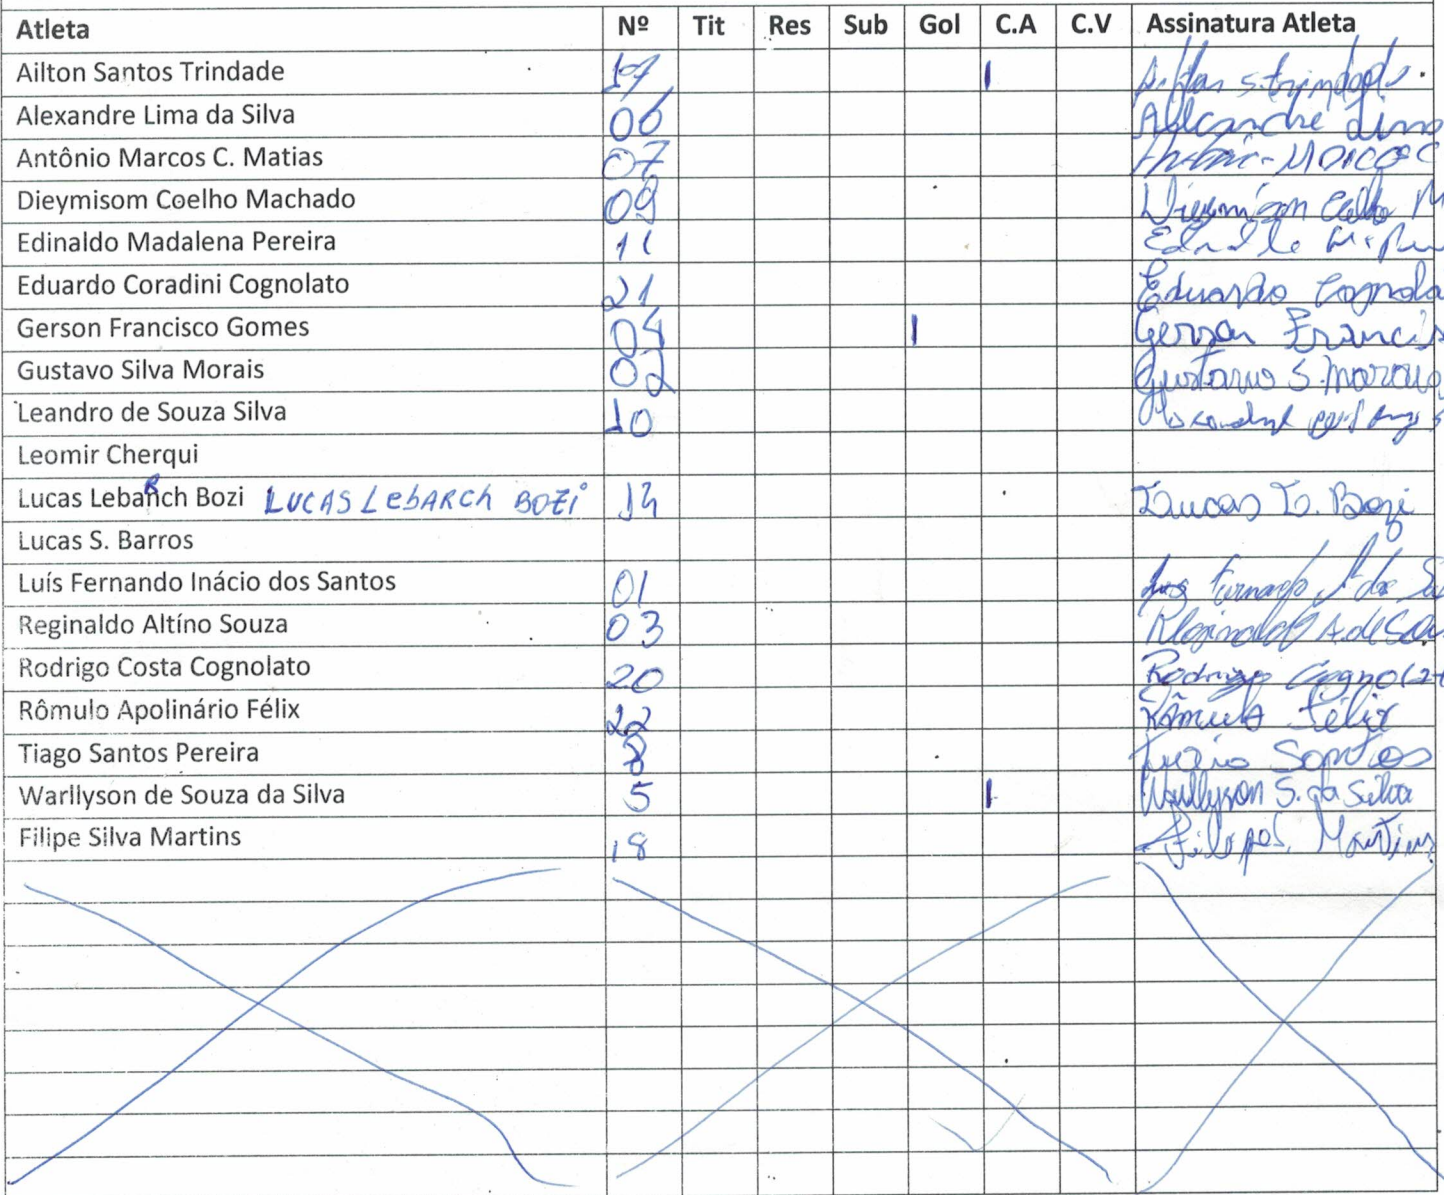 Atleta Nº Tit Res Sub Gol C.A C.V Assinatura Atleta
Ailton Santos Trindade 17 I Ailton S. Trindade.
Alexandre Lima da Silva 06 Lima
Antônio Marcos C. Matias 07 Marcos C
Dieymisom Coelho Machado 09 Dieymison Coelho M
Edinaldo Madalena Pereira 11
Eduardo Coradini Cognolato 21 Eduardo Cognola
Gerson Francisco Gomes 04 I Gerson Francis
Gustavo Silva Morais 02 Gustavo S. Morais
Leandro de Souza Silva 10
Leomir Cherqui
Lucas Lebarch Bozi LUCAS LEBARCH BOZI 14 Lucas L. Bozi
Lucas S. Barros
Luís Fernando Inácio dos Santos 01 Fernando I dos Sa
Reginaldo Altíno Souza 03 Reginaldo A. de Sou
Rodrigo Costa Cognolato 20 Rodrigo Cognolat
Rômulo Apolinário Félix 22 Rômulo Félix
Tiago Santos Pereira 8 Santos
Warllyson de Souza da Silva 5 I Warllyson S. da Silva
Filipe Silva Martins 18 Filipe S. Martins